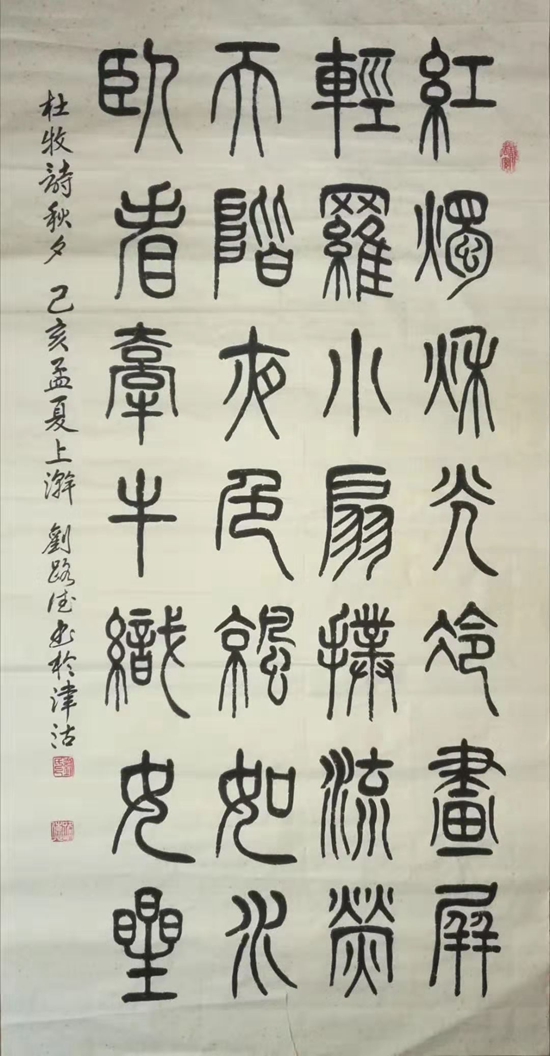 紅燭秋光冷畫屏
輕羅小扇撲流螢
天階夜色涼如水
臥看牽牛織女星
杜牧詩秋夕 己亥孟夏上澣 劉路德書於津沽